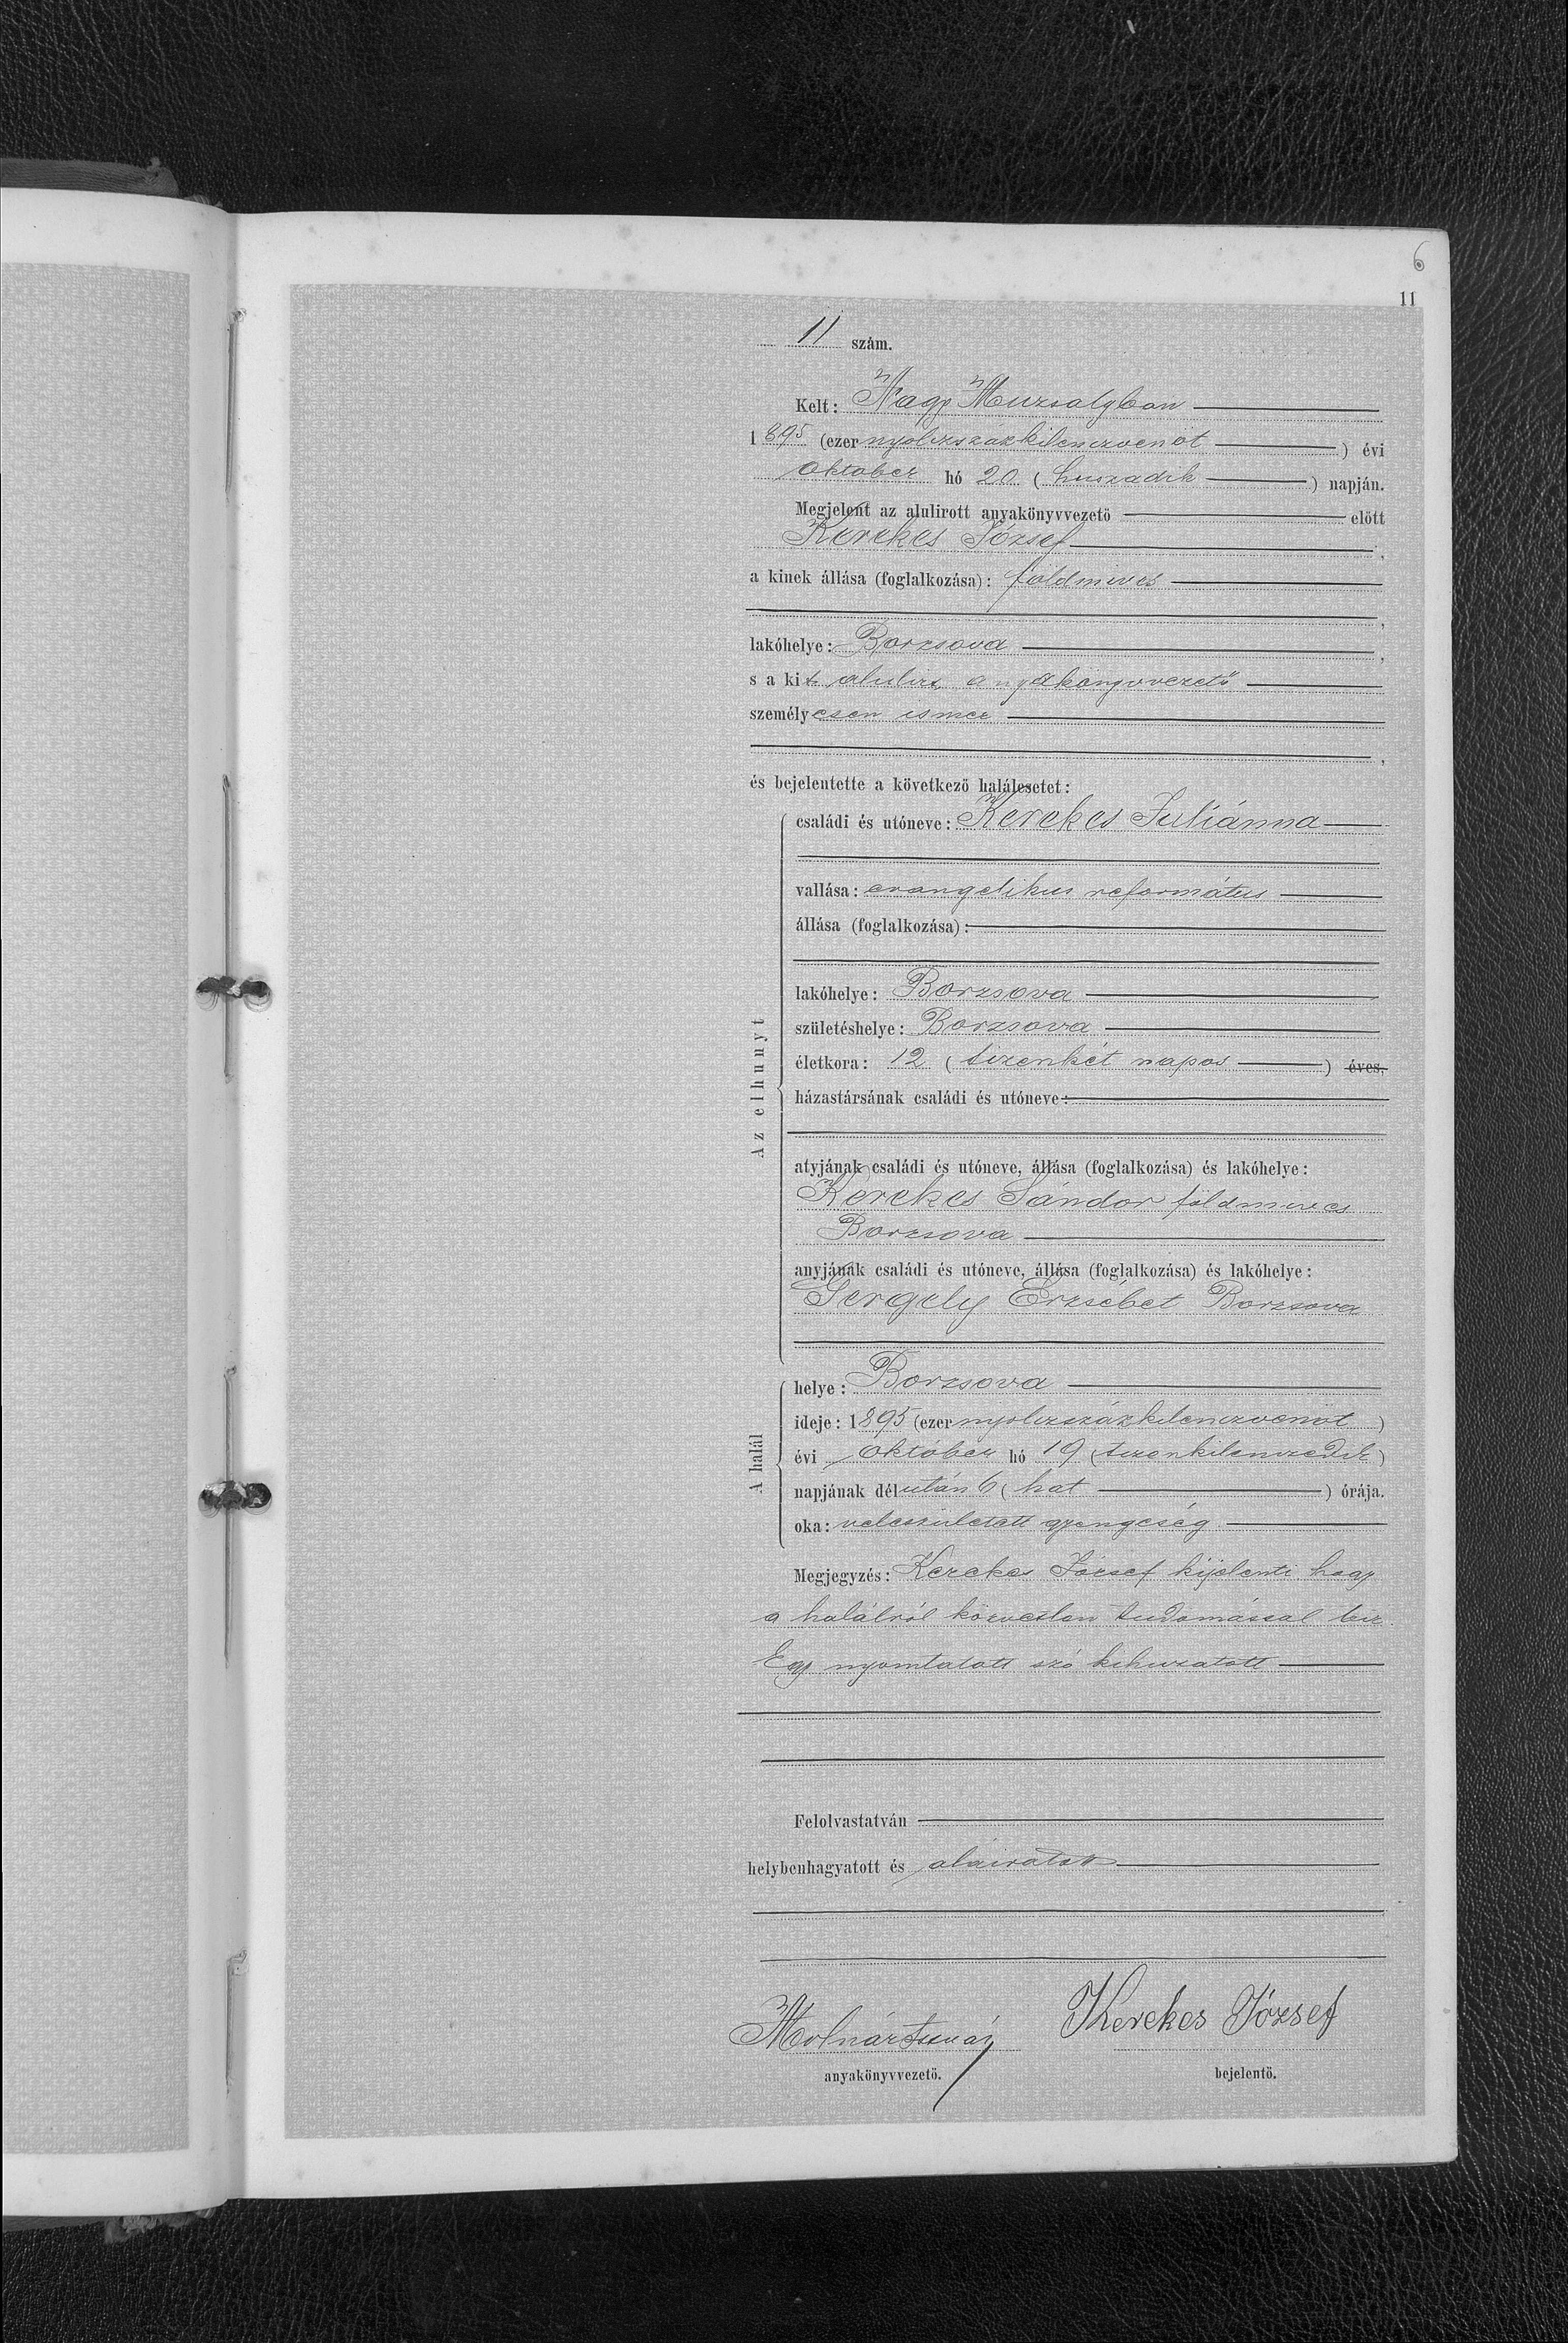 6
11
11 szám.
Kelt: Nagy Muzsalyban
1895 (ezer nyolczszázkilenczvenöt) évi
október hó 20 (huszadik) napján.
Megjelent az alulirott anyakönyvvezető előtt
Kerekes József,
a kinek állása (foglalkozása): földmives
lakóhelye: Borzsova,
s a kit alulirt anyakönyvvezető
személyesen ismer
,
és bejelentette a következő halálesetet:
Az elhunyt
családi és utóneve: Kerekes Juliánna
vallása: evangelikus református
állása (foglalkozása):
lakóhelye: Borzsova
születéshelye: Borzsova
életkora: 12 (tizenkét napos) éves,
házastársának családi és utóneve:
atyjának családi és utóneve, állása (foglalkozása) és lakóhelye:
Kerekes Sándor földmives
Borzsova
anyjának családi és utóneve, állása (foglalkozása) és lakóhelye:
Gergely Erzsébet Borzsova
A halál
helye: Borzsova
ideje: 1895 (ezer nyolczszázkilenczvenöt)
évi október hó 19 (tizenkilenczedik)
napjának délután 6 (hat) órája.
oka: veleszületett gyengeség
Megjegyzés: Kerekes József kijelenti hogy
a halálról közvetlen tudomással bir
Egy nyomtatott szó kihuzatott
Felolvastatván
helybenhagyatott és aláiratott
Molnár István Kerekes József
anyakönyvvezető. bejelentő.